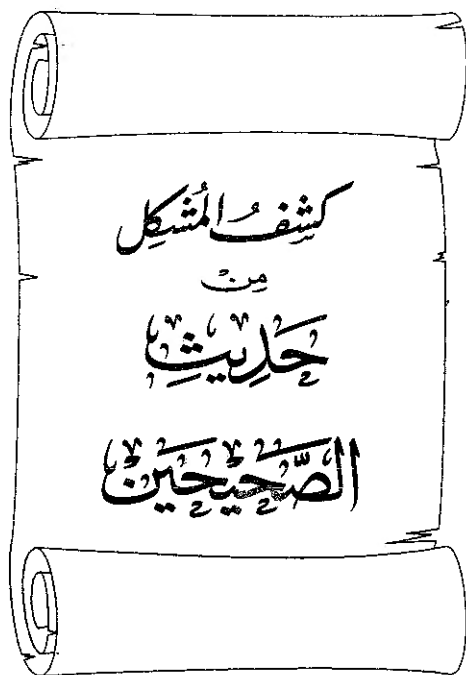 كَشْفُ المُشْكِلِ
مِنْ
حَدِيثِ
الصَّحِيحَيْنِ